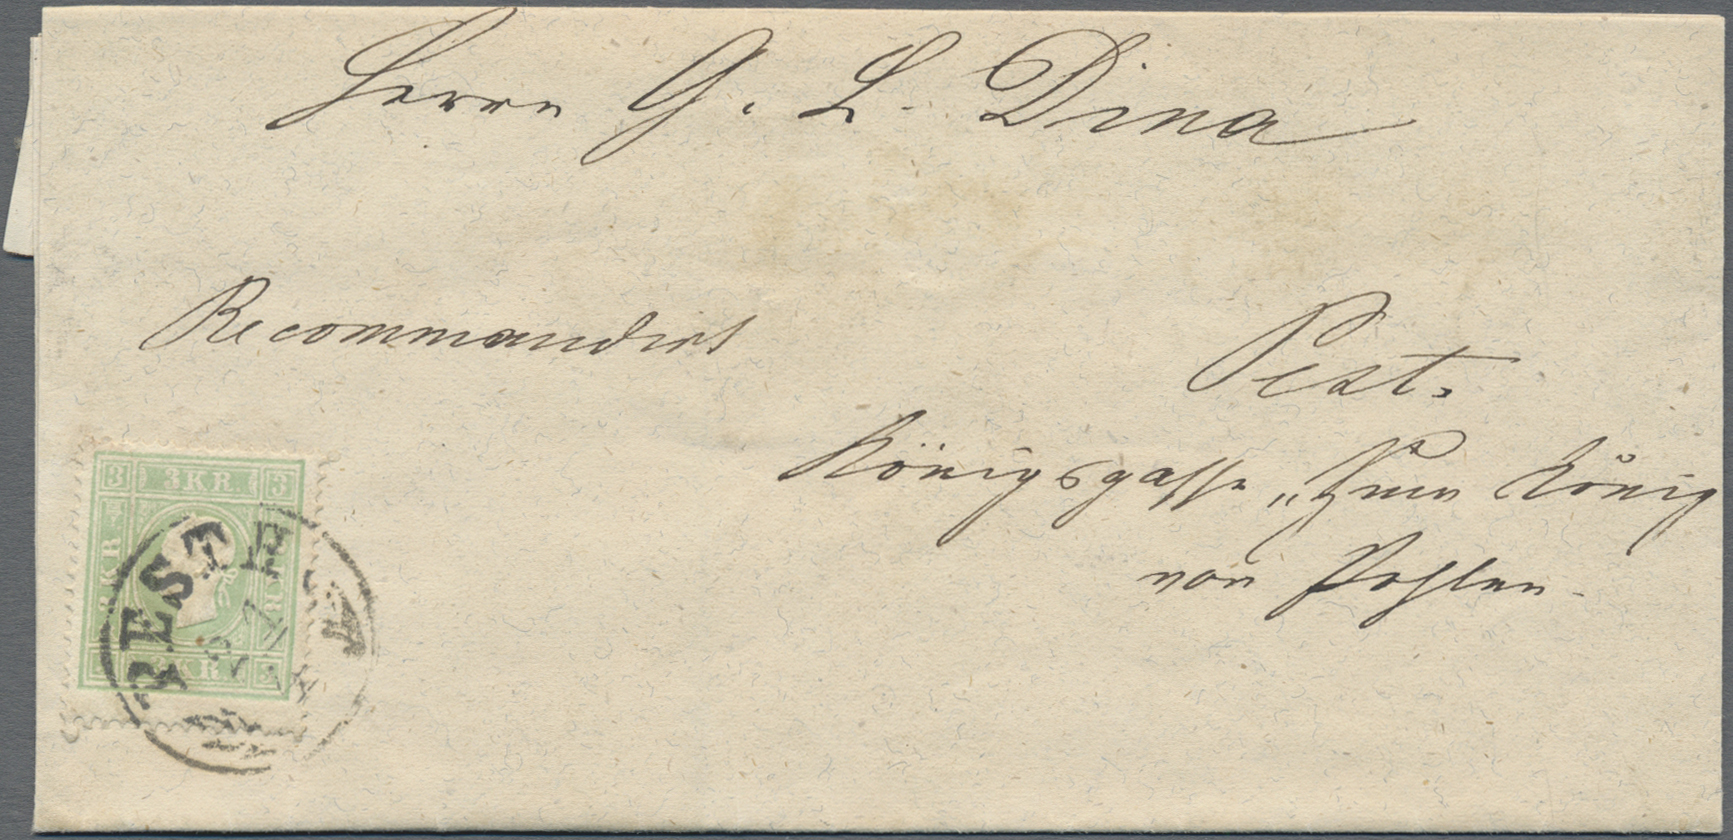 Herrn G. L. Dina
Recommandirt
Pest.
Königsgasse „Zum König
von Pohlen.
3 3 KR. 3
KR
KR
3 KR 3
PESTH